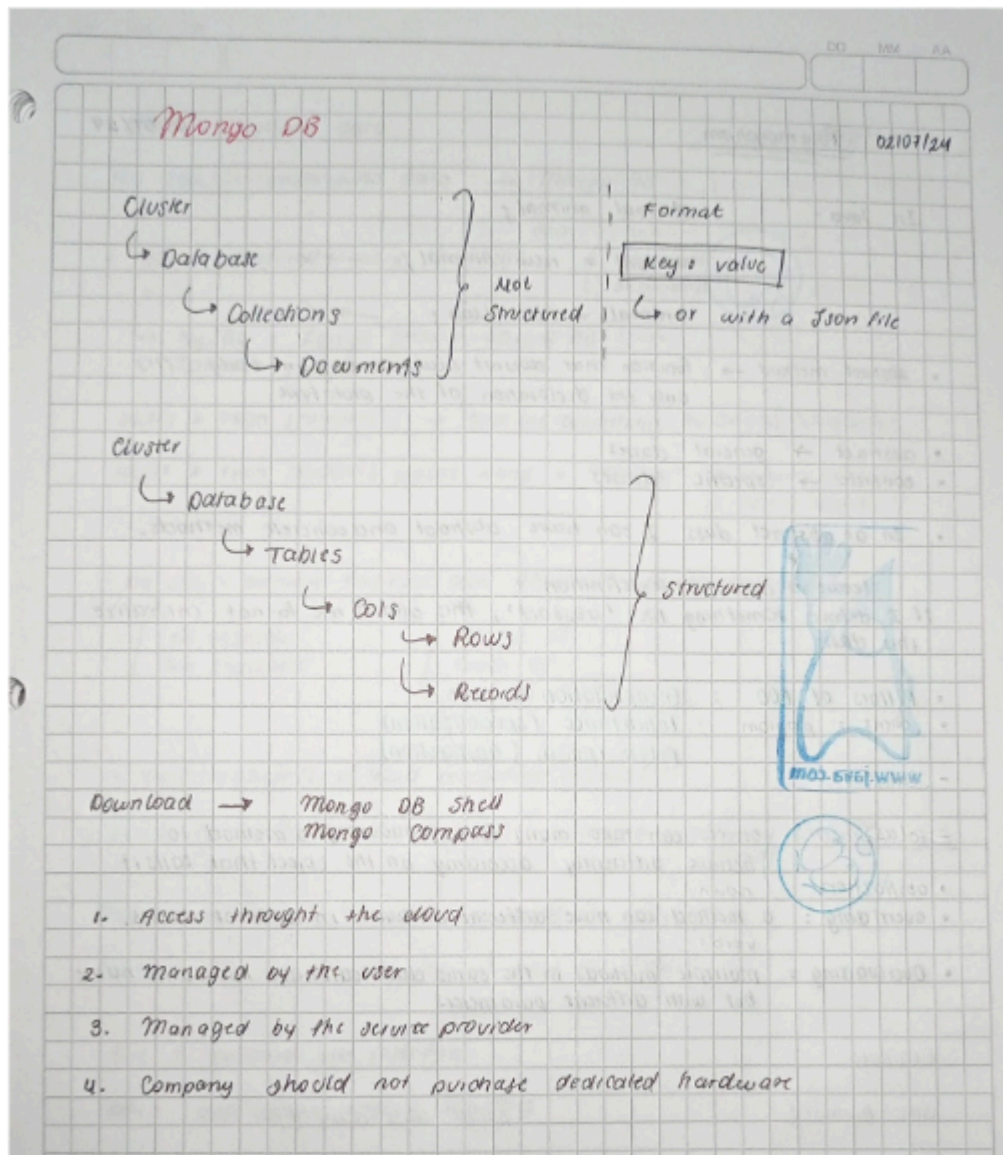 DD MM AA
Mongo DB
02/07/24
Cluster
Database
Collections
Documents
Not
Structured
Format
Key : value
or with a Json file
Cluster
Database
Tables
Cols
Rows
Records
Structured
Download → Mongo DB Shell
Mongo Compass
1. Access throught the cloud
2. Managed by the user
3. Managed by the service provider
4. Company should not purchase dedicated hardware